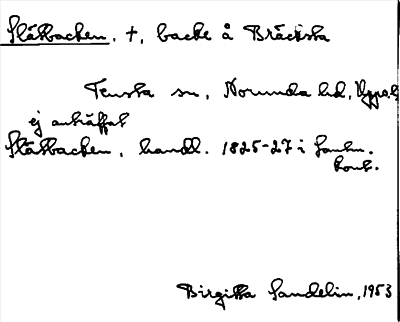 Slåtbacken, †, backe å Bräcksta
Tensta sn, Norunda hd, Uppl.
ej anträffat
Slåtbacken, handl. 1825-27 i Lantm.
kont.
Birgitta Sandelin, 1953